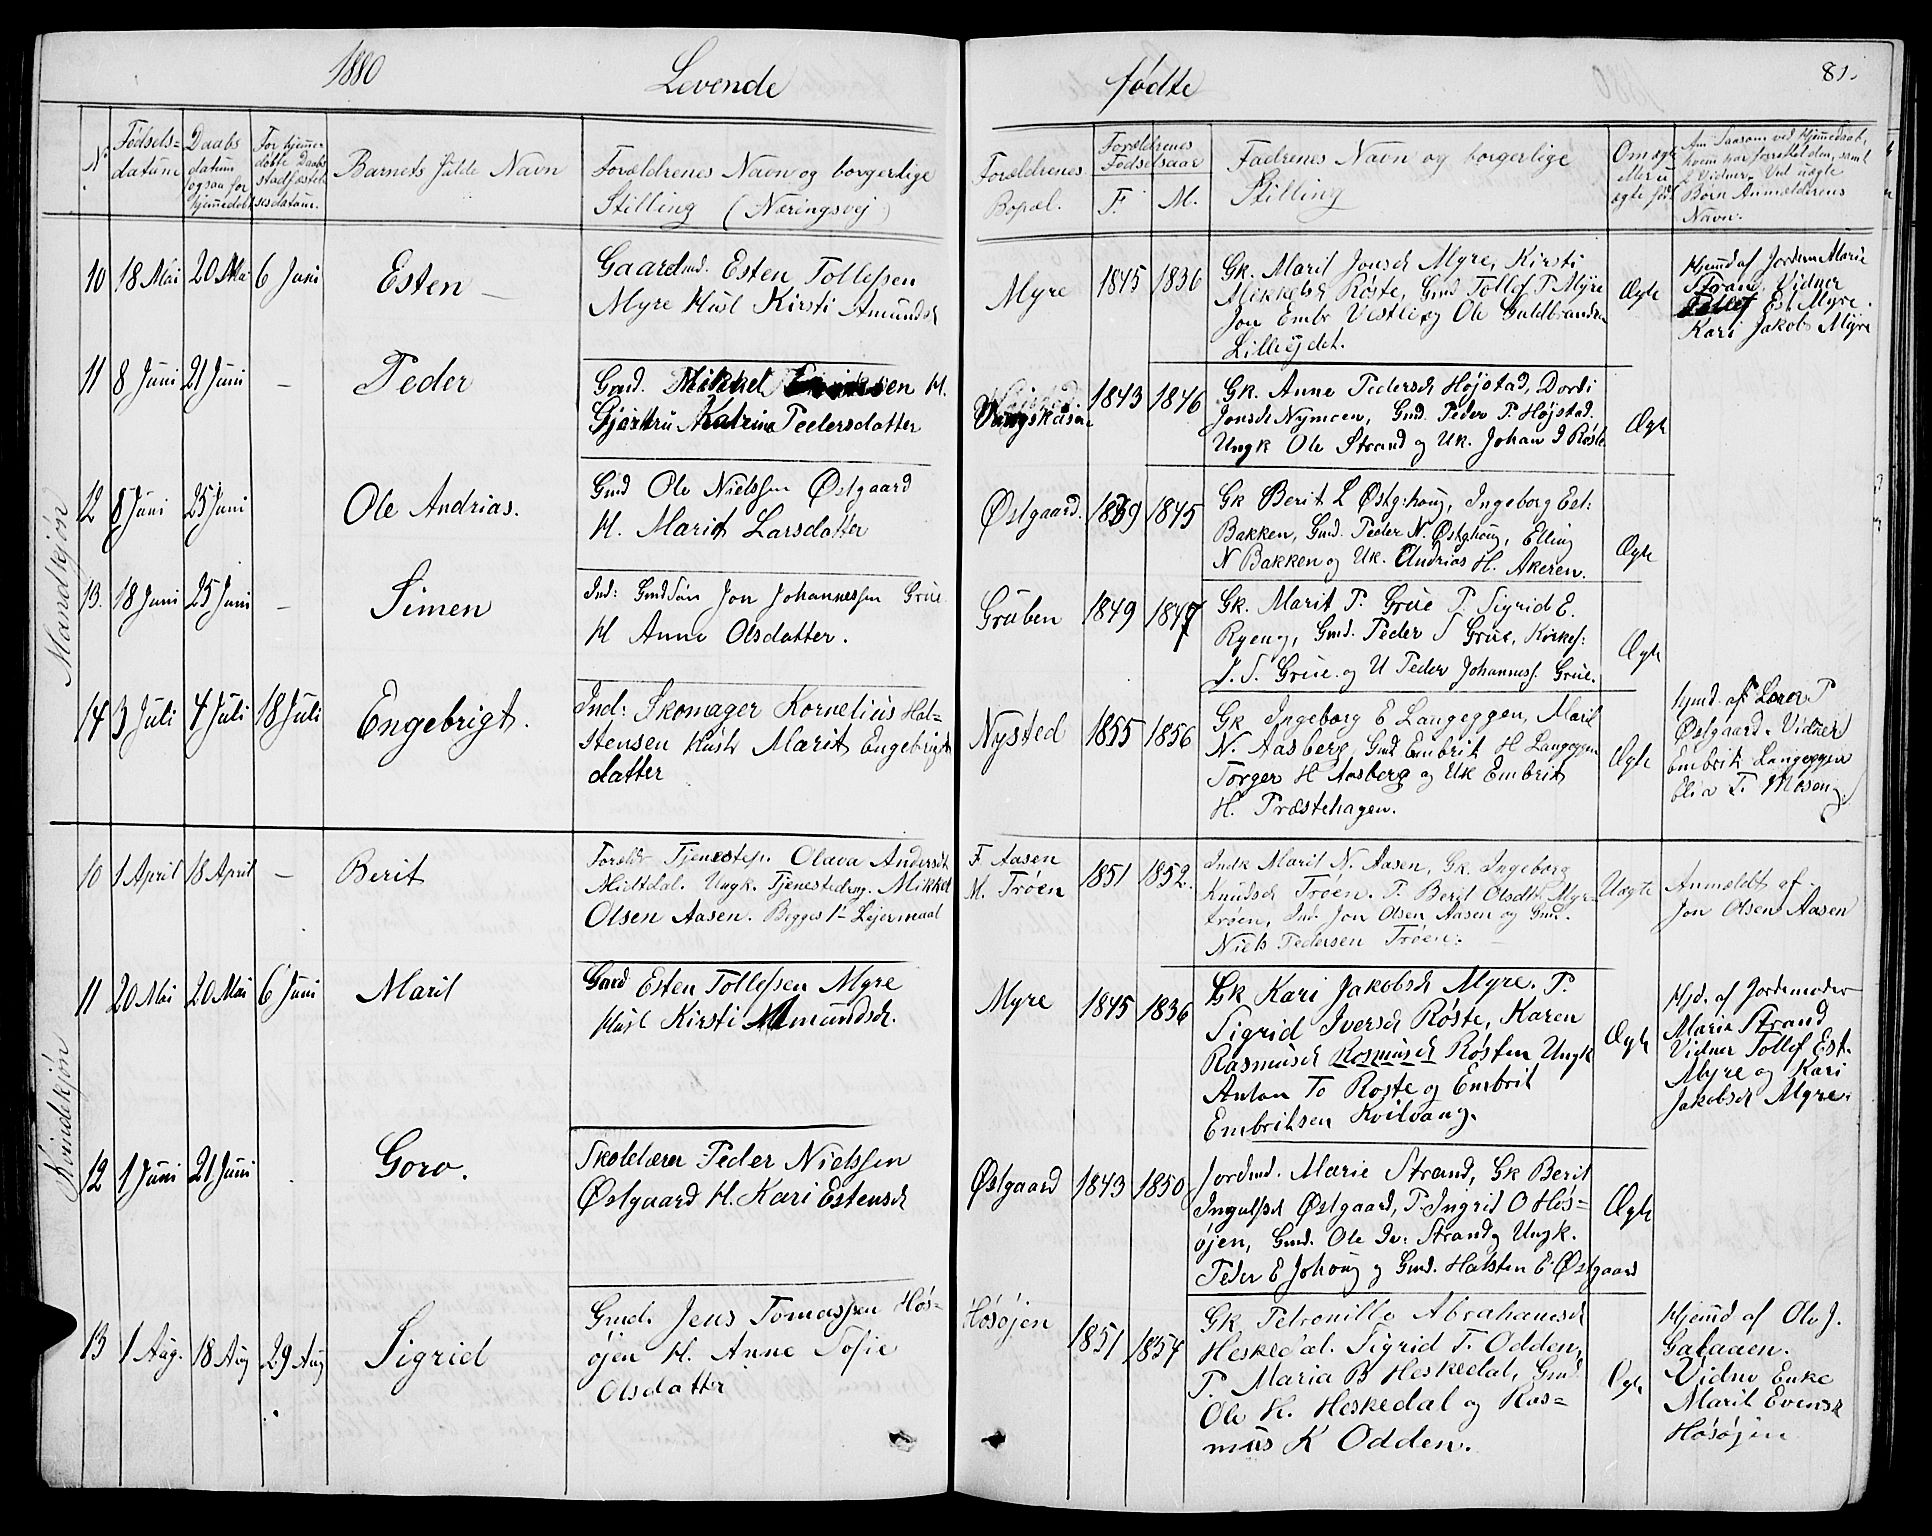 1880 Levende fødte 81.
N. Fødsels=datum Daabsdatum ogsaa for hjemedøbt For hjemmedøbte Daabs stadfæstelsesdatum. Barnets fulde Navn Forældrenes Navn og borgerlige Stilling (Næringsvej) Forældrenes Bopæl. Forældrenes Fødselsaar F. M. Fadrenes Navn og borgerlige Stilling Om ægte eller uægte født
Børn Anmelderens
Navn.
Mandkjøn
10 18 Mai 20 Mai 6 Juni Esten
Gaardmd. Esten Tollefsen
Myre Hust Kirsti Amundsd
Myre 1845 1836
Gk. Marit Jonsd Myre, Kirsti
Mikkelsd Røste, Gmd Tollef P Myre
Jon Embr Vestlie og Ole Guldbrandsen
Lilleøjdet.
Ægte
Hjemd af Jordem Marie
Strand, Vidner
Tollef Est Myre.
Kari Jakobs Myre
11 8 Juni 21 Juni - Peder
Gmd. Mikkel Eriksen H.
Gjertru Katrine Pedersdatter
1843 1846
Gk. Anne Pedersd Højstad, Dordi
Jonsd Nymoen, Gmd. Peder P. Højstad.
Ungk Ole Strand og Uk. Johan I Røste
Ægte
12 8 Juni 25 Juni Ole Andrias.
Gmd Ole Nielssen Østgaard
H. Marit Larsdatter
Østgaard. 1839 1845
Gk Berit L Østghoug, Ingeborg Est:
Bakken, Gmd. Peder N. Østghoug, Elling
N Bakken og Uk. Andrias H. Akeren.
Ægte
13. 18 Juni 25 Juni - Simen
Ind: Gmdsøn Jon Johannessen Grue
H Anne Olsdatter.
Gruben 1849 1847
Gk. Marit P. Grue P. Sigrid E.
Ryeng, Gmd. Peder S Grue, Kirkes:
J. S. Grue og U Peder Johanness. Grue.
Ægte
14 3 Juli 4 Juli 18 Juli Engebrigt.
Ind: Skomager Kornelius Hal=
stensen Hustr Marit Engebrigts
datter
Nysted 1855 1856
Gk Ingeborg E Langeggen, Marit
N. Aasberg, Gmd Embrik H Langeggen
Torger H Aasberg og Uk Embrit
H. Præstehagen.
Ægte
Hjmd. af Lærer P
Østgaard. Vidner
Embrik Langeggen
Elia T. Moseng.
Kvindekjøn
10 1 April 18 April - Berit
Forældr Tjenestep. Olava Andersd
Mieltdal. Ungk. Tjenestedrg. Mikkel
Olsen Aasen. Begges 1ste Lejermaal
F. Aasen
M. Trøen
1851 1852.
Indk Marit N. Aasen, Gk. Ingeborg
Knudsd Trøen. P. Berit Olsdtr Myr=
trøen, Ind. Jon Olsen Aasen og Gmd.
Niels Pedersen Trøen.
Uægte
Anmeldt af
Jon Olsen Aasen
11 20 Mai 20 Mai 6 Juni Marit
Gmd Esten Tollefsen Myre
Hust Kirsti Amundsd.
Myre 1845 1836
Gk Kari Jakobsd Myre. P.
Sigrid Iversd Røste, Karen
Rasmusd Rasmusd Røsten Ungk
Anton To Røste og Embrit
Embriksen Kvilvang.
Ægte
Hjd. af Jordemoder
Marie Strand
Vidner Tollef Est.
Myre og Kari
Jakobsd Myre.
12 1 Juni 21 Juni Goro.
Skolelærer Peder Nielssen
Østgaard H. Kari Estensd
Østgaard 1843 1850
Jordmd. Marie Strand, Gk Berit
Ingulfsd Østgaard, P. Ingrid O Høs=
øjen, Gmd. Ole Iv: Strand, Ungk.
Peder E Johoug og Gmd. Halsten E. Østgaard
Ægte
13 1 Aug. 18 Aug 29 Aug Sigrid
Gmd. Jens Tomassen Høs=
øjen H. Anne Sofie
Olsdatter
Høsøjen 1851 1854
Gk Petronille Abrahamsd
Heskedal. Sigrid T. Odden,
P. Maria B Heskedal, Gmd
Ole H. Heskedal og Ras=
mus K Odden.
Ægte
Hjemd af Ole J.
Galaaen.
Vidne Enke
Marit Evensd
Høsøjen